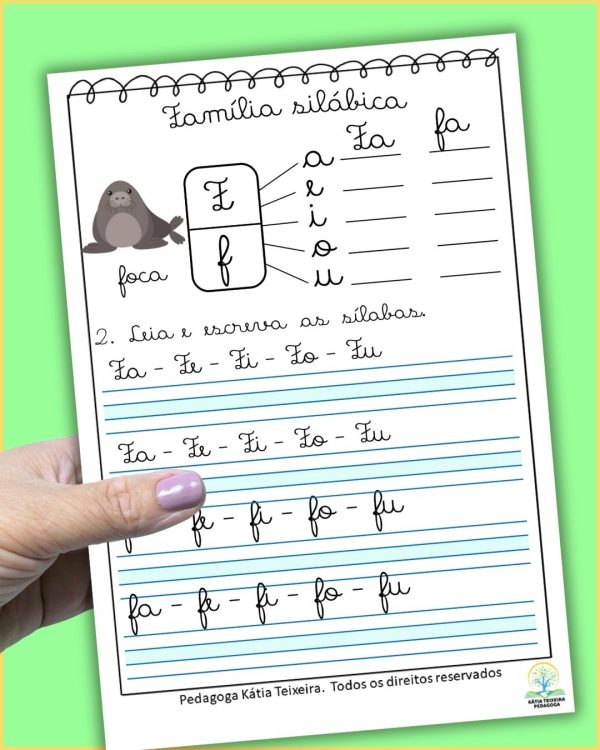 Família silábica
Fa fa
F a
e
i
f o
foca u
2. Leia e escreva as sílabas.
Fa - Fe - Fi - Fo - Fu
Fa - Fe - Fi - Fo - Fu
fe - fi - fo - fu
fa - fe - fi - fo - fu
Pedagoga Kátia Teixeira. Todos os direitos reservados
KÁTIA TEIXEIRA
PEDAGOGA